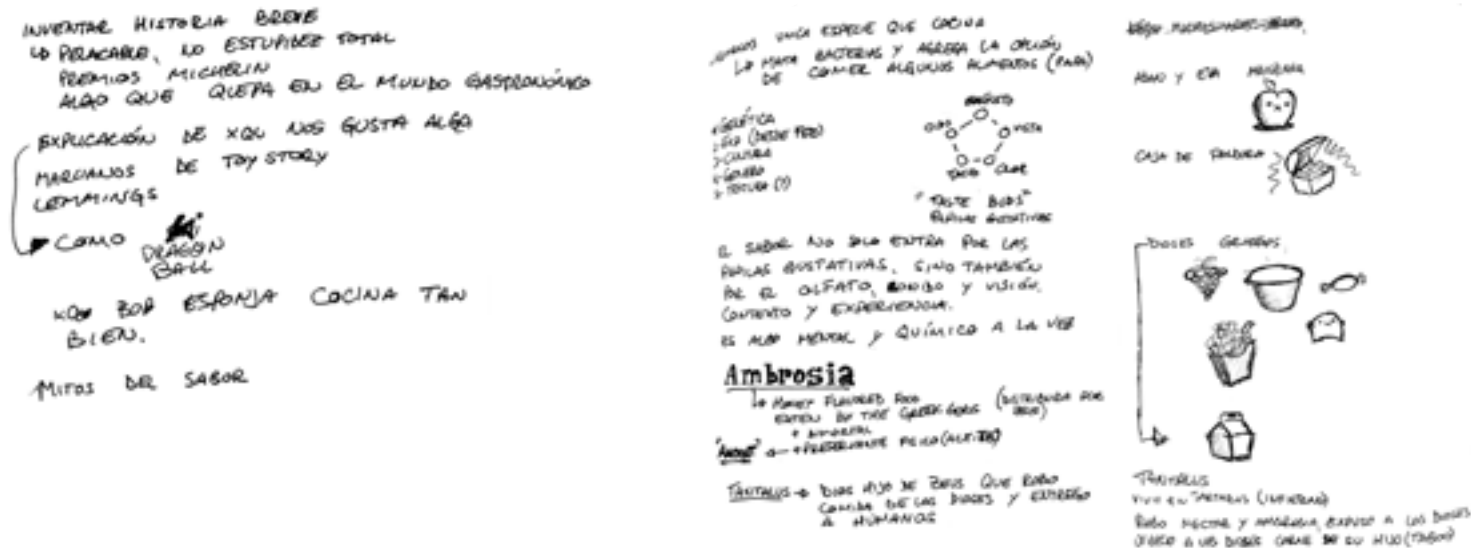 INVENTAR HISTORIA BREVE
NO ESTUPIDEZ TOTAL
PREMIOS MICHELIN
ALGO QUE QUEPA EN EL MUNDO GASTRONÓMICO
EXPLICACIÓN DE XQU NOS GUSTA ALGO
MARCIANOS DE TOY STORY
LEMMINGS
COMO
DRAGON
BALL
XQU BOB ESPONJA COCINA TAN
BIEN.
MITOS DEL SABOR
UNICA ESPECIE QUE COCINA
MATA BACTERIAS Y AGREGA LA OPCIÓN
DE COMER ALGUNOS ALIMENTOS (PAPA)
GENÉTICA
CULTURA
GENERO
TEXTURA (?)
OIDO
VISTA
TACTO
OLOR
"TASTE BUDS"
PAPILAS GUSTATIVAS
EL SABOR NO SOLO ENTRA POR LAS
PAPILAS GUSTATIVAS, SINO TAMBIÉN
POR EL OLFATO, SONIDO Y VISIÓN,
CONTEXTO Y EXPERIENCIA.
ES ALGO MENTAL Y QUÍMICO A LA VEZ
Ambrosia
HONEY FLAVORED FOOD
EATEN BY THE GREEK GODS (DISTRIBUIDA POR
+ INMORTAL
TANTALUS → DIOS HIJO DE ZEUS QUE ROBO
COMIDA DE LOS DIOSES Y ENTREGO
A HUMANOS
ADAN Y EVA MANZANA
CAJA DE PANDORA
DIOSES GRIEGOS
TANTALUS
VIVE EN TARTARUS (INFIERNO)
ROBO NECTAR Y AMBROSIA, A LOS DIOSES
A LOS DIOSES CARNE DE SU HIJO